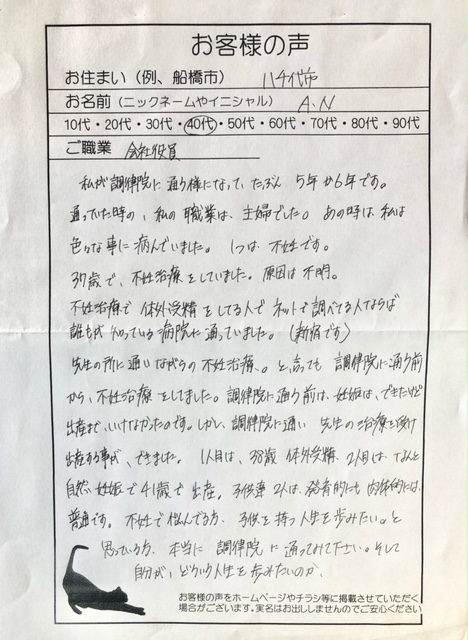 お客様の声
お住まい（例、船橋市） 八千代市
お名前（ニックネームやイニシャル） A.N
10代・20代・30代・40代・50代・60代・70代・80代・90代
ご職業 会社役員
私が調律院に通う様になって、たぶん 5年か6年です。
通っていた時の、私の職業は、主婦でした。 あの時は、私は
色々な事に病んでいました。 1つは、不妊です。
37歳で、不妊治療をしていました。原因は不明。
不妊治療で 体外受精をしてる人で ネットで調べてる人ならば
誰もが知っている病院に通っていました。（新宿です）
先生の所に通いながらの不妊治療。と言っても 調律院に通う前
から、不妊治療をしてました。調律院に通う前は、妊娠は、できたけど
出産まで、いけなかったのです。しかし、調律院に通い 先生の治療を受け
出産する事が、できました。 1人目は、38歳 体外受精、2人目は、なんと
自然妊娠で41歳で出産。子供達2人は、発育的にも肉体的には、
普通です。 不妊で悩んでる方、子供を持つ人生を歩みたい。と
思っている方、本当に 調律院に通ってみて下さい。そして
自分が、どういう人生を歩みたいのか、
お客様の声をホームページやチラシ等に掲載させていただく
場合がございます。実名はお出ししませんのでご安心ください